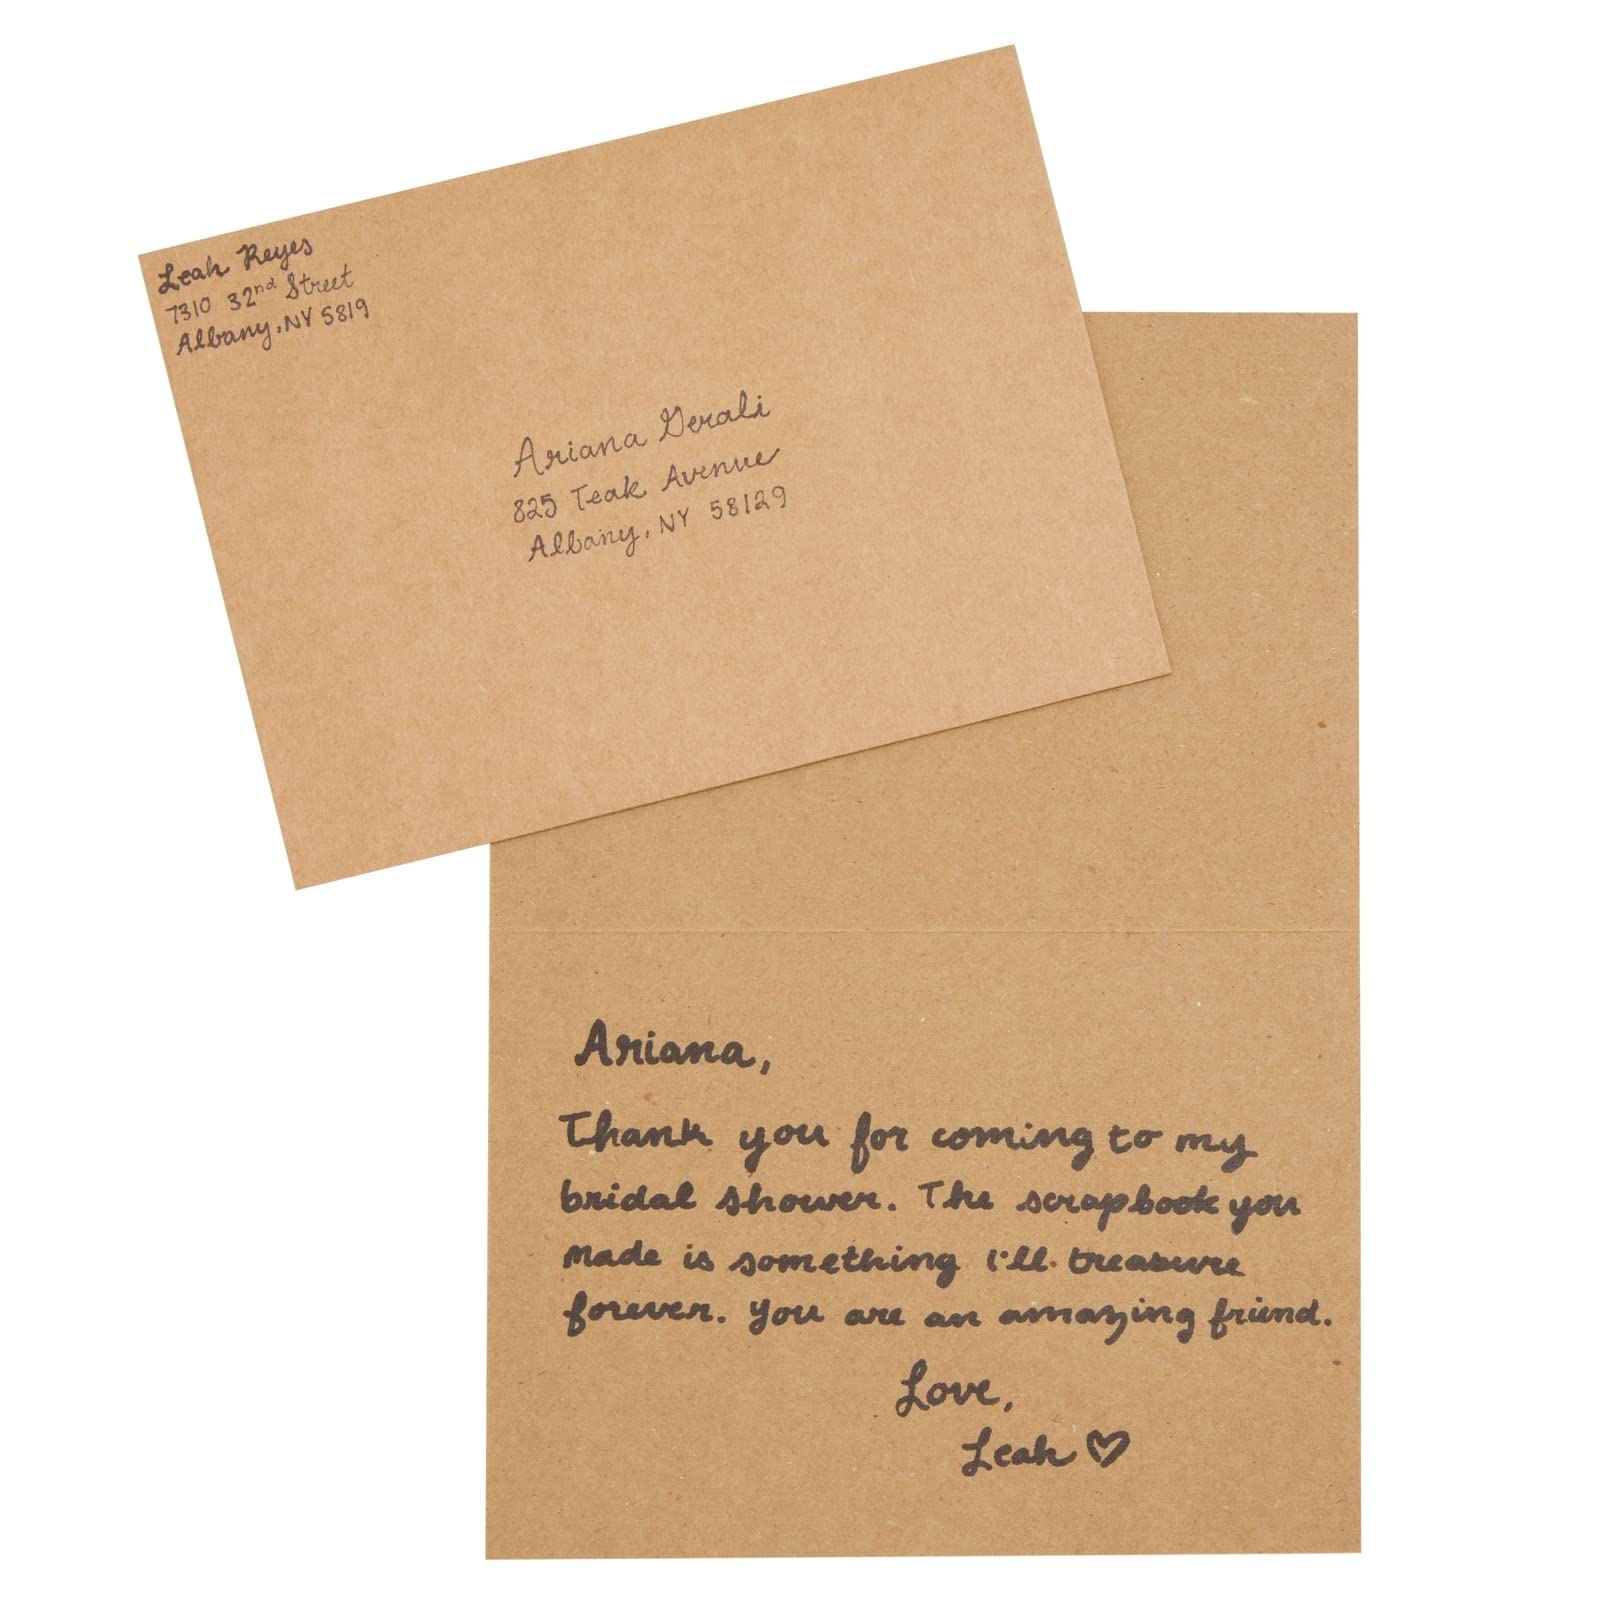 Leah Reyes
7310 32nd Street
Albany, NY 5819
Ariana Gerali
825 Teak Avenue
Albany, NY 58129
Ariana,
Thank you for coming to my
bridal shower. The scrapbook you
made is something I'll treasure
forever. You are an amazing friend.
Love,
Leah ♡